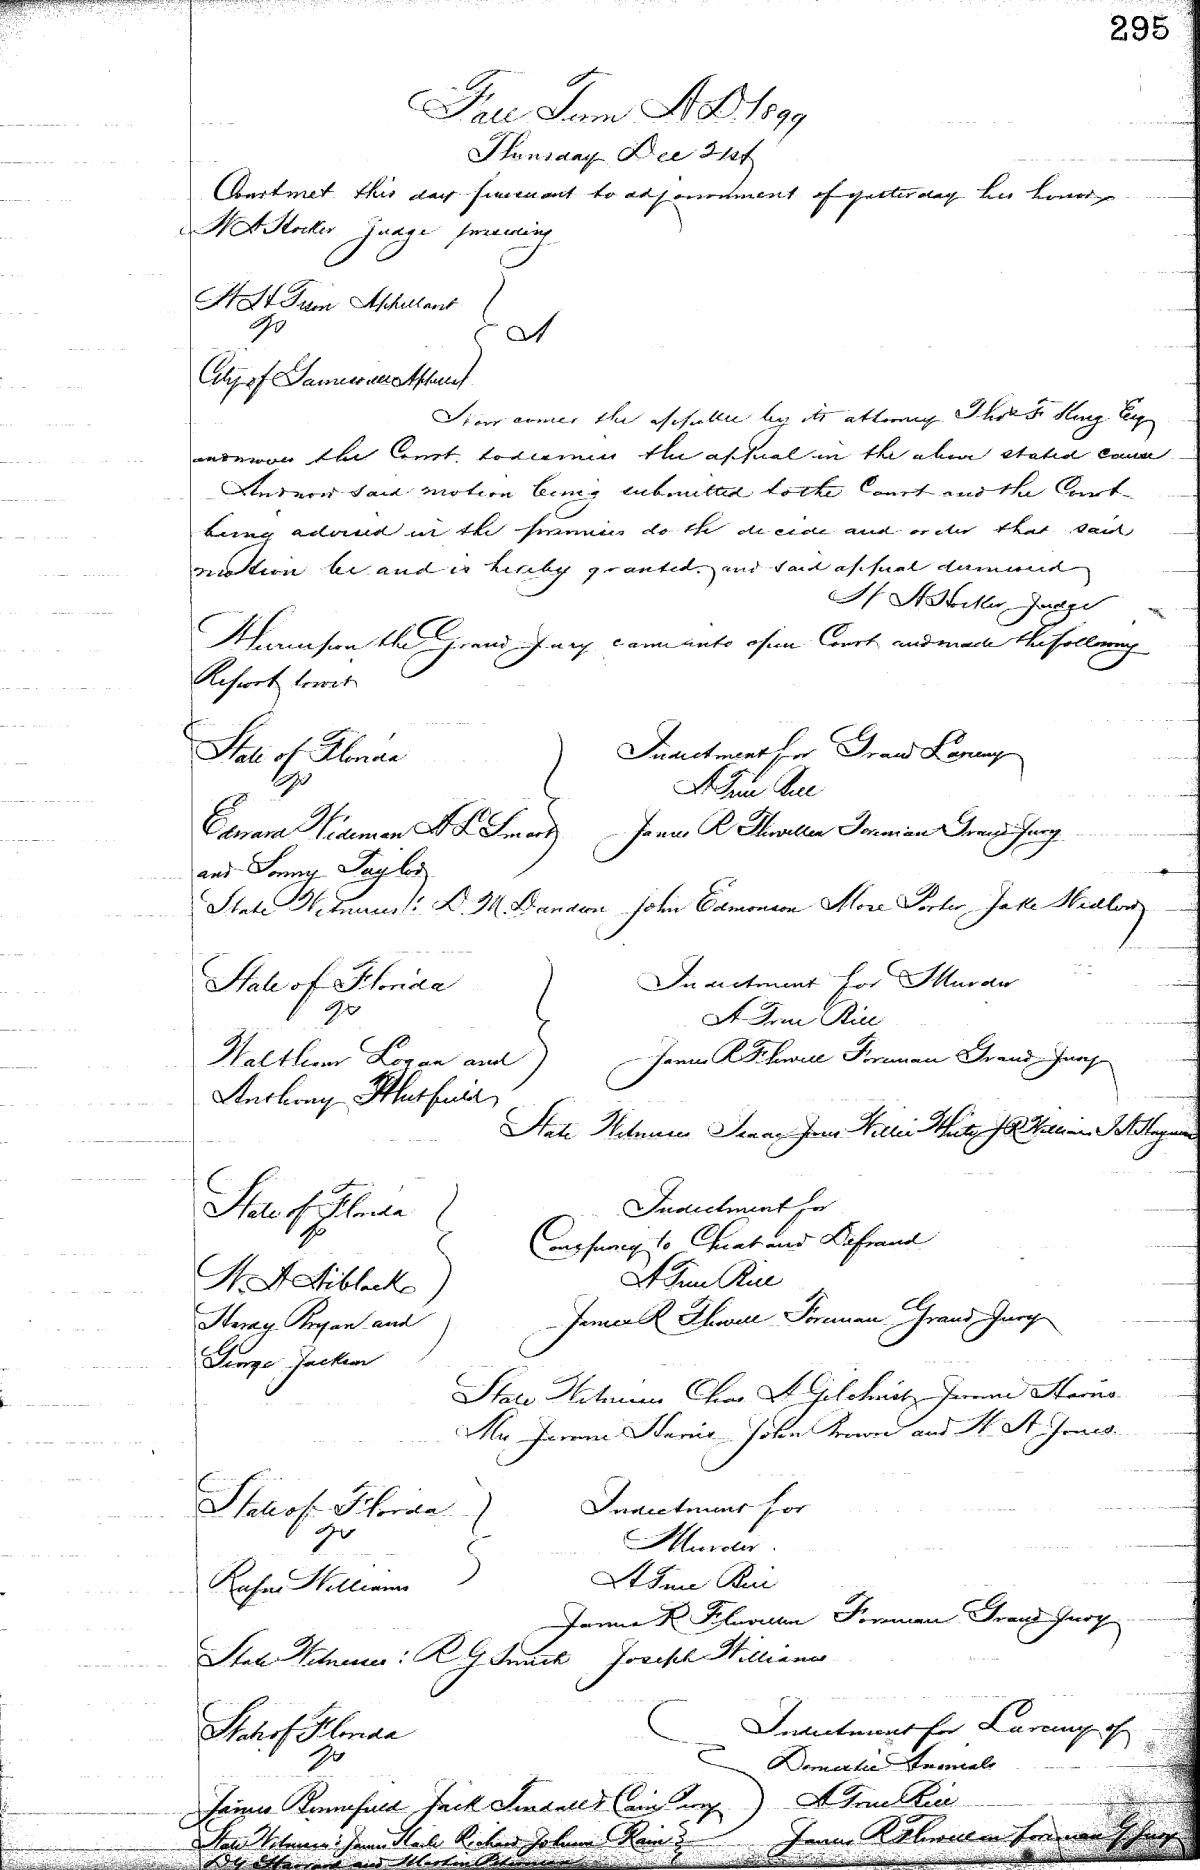 295
Fall Term A.D. 1899
Thursday Dec 21st
Court met this day pursuant to adjournment of yesterday his honor
W A Hocker Judge presiding
Appellant
vs
City of Gainesville Appellee
Now comes the appellee by its attorney Thos F King Esq
and moves the Court to dismiss the appeal in the above stated cause
And now said motion being submitted to the Court and the Court
being advised in the premises do th decide and order that said
motion be and is hereby granted, and said appeal dismissed
W A Hocker Judge
Whereupon the Grand Jury came into open Court and made the following
Report towit
State of Florida Indictment for Grand Larceny
vs A True Bill
Edward Wideman A L Smart James R Flewellen Foreman Grand Jury
and Sonny Taylor
State Witnesses: D. M. John Edmonson Mose Porter Jake
State of Florida Indictment for Murder
vs A True Bill
Logan and James R Flewell Foreman Grand Jury
Anthony Hatfield
State Witnesses Isaac Jones Willie White J R Williams
State of Florida Indictment for
vs Conspiracy to Cheat and Defraud
W. A Niblack A True Bill
Bryan and James R Flewell Foreman Grand Jury
George Jackson
State Witnesses Chas A Gilchrist Jerome Harris
Mrs Jerome Harris John Brown and W A Jones
State of Florida Indictment for
vs Murder.
Rufus Williams A True Bill
James R Flewellen Foreman Grand Jury
State Witnesses: R G Smith Joseph Williams
State of Florida Indictment for Larceny of
vs Domestic Animals
James Bennefield Jack A True Bill
State Witnesses: James Richard Johnson James R Flewellen foreman G Jury
and Martin